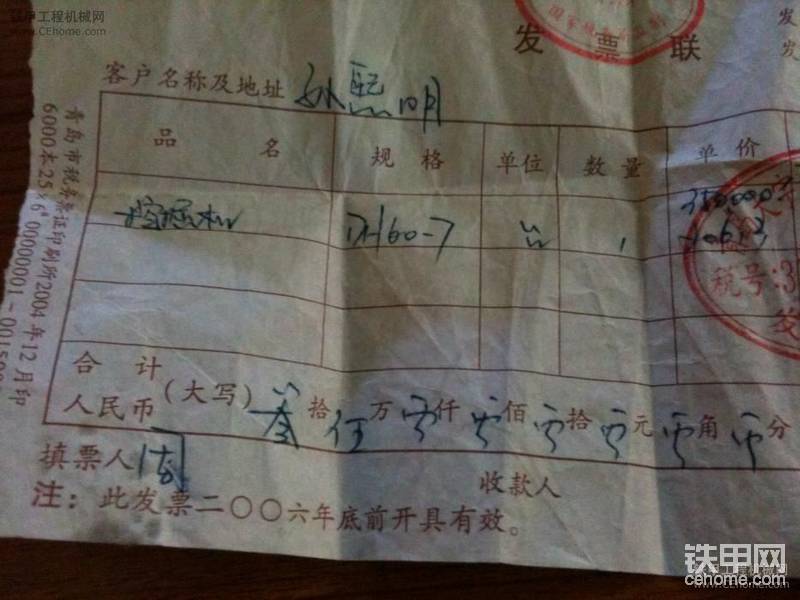 铁甲工程机械网
www.CEhome.com
发票联
发
发
客户名称及地址 孙熙明
品名 规格 单位 数量 单价
挖掘机 台 1 350000
税号:3
发
合计
人民币 (大写) 叁拾伍万零仟零佰零拾零元零角零分
填票人 周 收款人
注: 此发票二〇〇六年底前开具有效。
青岛市税务票证印刷所2004年12月印
铁甲网
cehome.com